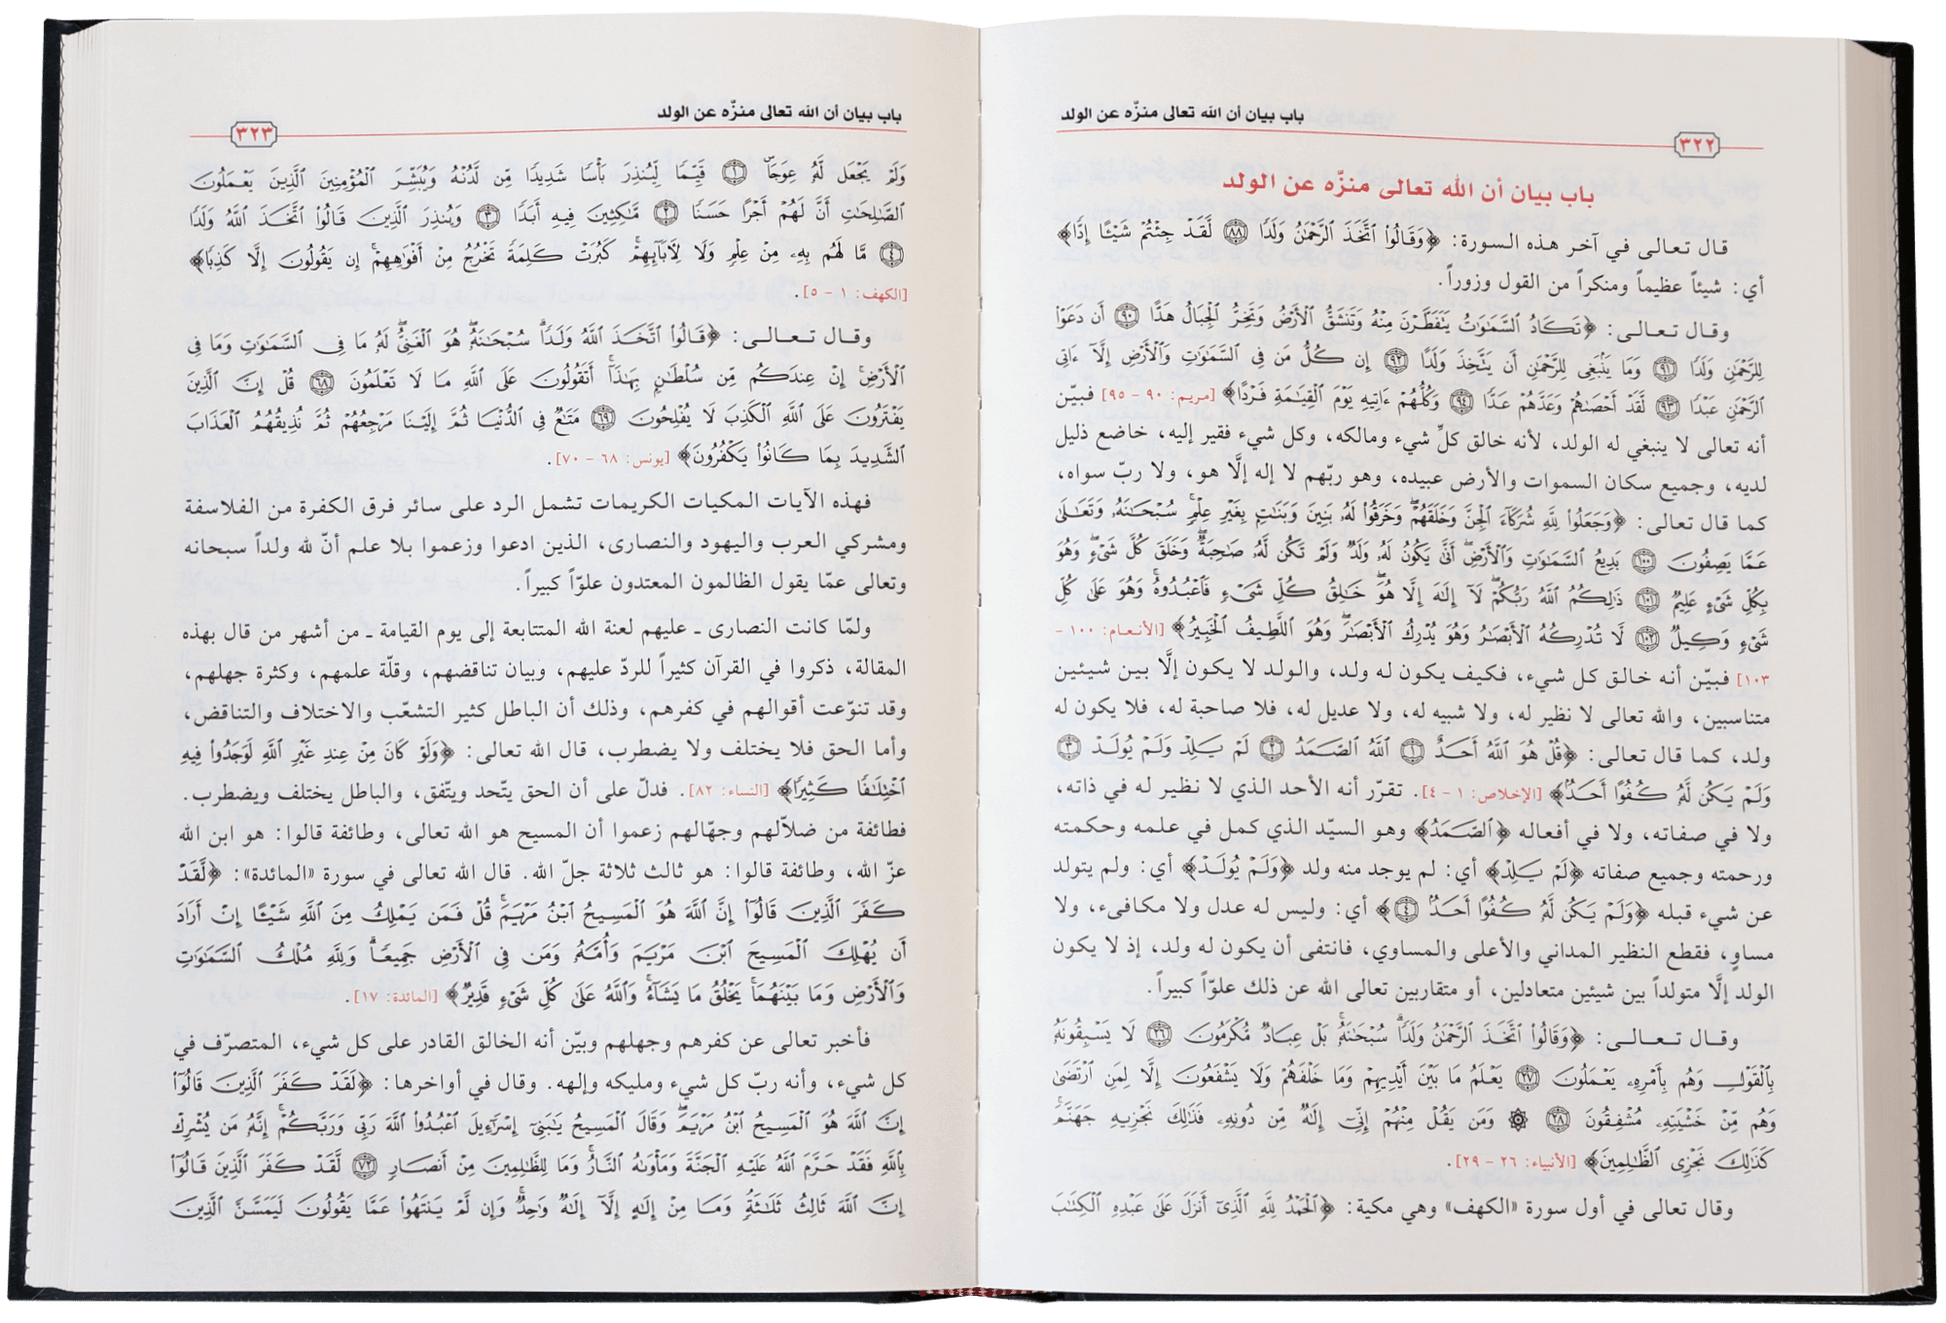 باب بيان أن الله تعالى منزّه عن الولد
٣٢٢
باب بيان أن الله تعالى منزّه عن الولد
قال تعالى في آخر هذه السورة: ﴿وَقَالُوا۟ ٱتَّخَذَ ٱلرَّحْمَٰنُ وَلَدًا ٨٨ لَّقَدْ جِئْتُمْ شَيْـًٔا إِدًّا﴾
أي: شيئاً عظيماً ومنكراً من القول وزوراً.
وقال تعالى: ﴿تَكَادُ ٱلسَّمَٰوَٰتُ يَتَفَطَّرْنَ مِنْهُ وَتَنشَقُّ ٱلْأَرْضُ وَتَخِرُّ ٱلْجِبَالُ هَدًّا ٩٠ أَن دَعَوْا۟
لِلرَّحْمَٰنِ وَلَدًا ٩١ وَمَا يَنۢبَغِى لِلرَّحْمَٰنِ أَن يَتَّخِذَ وَلَدًا ٩٢ إِن كُلُّ مَن فِى ٱلسَّمَٰوَٰتِ وَٱلْأَرْضِ إِلَّآ ءَاتِى
ٱلرَّحْمَٰنِ عَبْدًا ٩٣ لَّقَدْ أَحْصَىٰهُمْ وَعَدَّهُمْ عَدًّا ٩٤ وَكُلُّهُمْ ءَاتِيهِ يَوْمَ ٱلْقِيَٰمَةِ فَرْدًا﴾ [مريم: ٩٠ - ٩٥] فبيّن
أنه تعالى لا ينبغي له الولد، لأنه خالق كلِّ شيء ومالكه، وكل شيء فقير إليه، خاضع ذليل
لديه، وجميع سكان السموات والأرض عبيده، وهو ربّهم لا إله إلَّا هو، ولا ربّ سواه،
كما قال تعالى: ﴿وَجَعَلُوا۟ لِلَّهِ شُرَكَآءَ ٱلْجِنَّ وَخَلَقَهُمْ وَخَرَقُوا۟ لَهُۥ بَنِينَ وَبَنَٰتٍۭ بِغَيْرِ عِلْمٍ سُبْحَٰنَهُۥ وَتَعَٰلَىٰ
عَمَّا يَصِفُونَ ١٠٠ بَدِيعُ ٱلسَّمَٰوَٰتِ وَٱلْأَرْضِ أَنَّىٰ يَكُونُ لَهُۥ وَلَدٌ وَلَمْ تَكُن لَّهُۥ صَٰحِبَةٌ وَخَلَقَ كُلَّ شَىْءٍ وَهُوَ
بِكُلِّ شَىْءٍ عَلِيمٌ ١٠١ ذَٰلِكُمُ ٱللَّهُ رَبُّكُمْ لَآ إِلَٰهَ إِلَّا هُوَ خَٰلِقُ كُلِّ شَىْءٍ فَٱعْبُدُوهُ وَهُوَ عَلَىٰ كُلِّ
شَىْءٍ وَكِيلٌ ١٠٢ لَّا تُدْرِكُهُ ٱلْأَبْصَٰرُ وَهُوَ يُدْرِكُ ٱلْأَبْصَٰرَ وَهُوَ ٱللَّطِيفُ ٱلْخَبِيرُ﴾ [الأنعام: ١٠٠ -
١٠٣] فبيّن أنه خالق كل شيء، فكيف يكون له ولد، والولد لا يكون إلَّا بين شيئين
متناسبين، والله تعالى لا نظير له، ولا شبيه له، ولا عديل له، فلا صاحبة له، فلا يكون له
ولد، كما قال تعالى: ﴿قُلْ هُوَ ٱللَّهُ أَحَدٌ ١ ٱللَّهُ ٱلصَّمَدُ ٢ لَمْ يَلِدْ وَلَمْ يُولَدْ ٣
وَلَمْ يَكُن لَّهُۥ كُفُوًا أَحَدٌۢ﴾ [الإخلاص: ١ - ٤]. تقرّر أنه الأحد الذي لا نظير له في ذاته،
ولا في صفاته، ولا في أفعاله ﴿ٱلصَّمَدُ﴾ وهو السيّد الذي كمل في علمه وحكمته
ورحمته وجميع صفاته ﴿لَمْ يَلِدْ﴾ أي: لم يوجد منه ولد ﴿وَلَمْ يُولَدْ﴾ أي: ولم يتولد
عن شيء قبله ﴿وَلَمْ يَكُن لَّهُۥ كُفُوًا أَحَدٌۢ ٤﴾ أي: وليس له عدل ولا مكافىء، ولا
مساوٍ، فقطع النظير المداني والأعلى والمساوي، فانتفى أن يكون له ولد، إذ لا يكون
الولد إلَّا متولداً بين شيئين متعادلين، أو متقاربين تعالى الله عن ذلك علوّاً كبيراً.
وقال تعالى: ﴿وَقَالُوا۟ ٱتَّخَذَ ٱلرَّحْمَٰنُ وَلَدًا سُبْحَٰنَهُۥ بَلْ عِبَادٌ مُّكْرَمُونَ ٢٦ لَا يَسْبِقُونَهُۥ
بِٱلْقَوْلِ وَهُم بِأَمْرِهِۦ يَعْمَلُونَ ٢٧ يَعْلَمُ مَا بَيْنَ أَيْدِيهِمْ وَمَا خَلْفَهُمْ وَلَا يَشْفَعُونَ إِلَّا لِمَنِ ٱرْتَضَىٰ
وَهُم مِّنْ خَشْيَتِهِۦ مُشْفِقُونَ ٢٨ ۞ وَمَن يَقُلْ مِنْهُمْ إِنِّىٓ إِلَٰهٌ مِّن دُونِهِۦ فَذَٰلِكَ نَجْزِيهِ جَهَنَّمَ
كَذَٰلِكَ نَجْزِى ٱلظَّٰلِمِينَ﴾ [الأنبياء: ٢٦ - ٢٩].
وقال تعالى في أول سورة «الكهف» وهي مكية: ﴿ٱلْحَمْدُ لِلَّهِ ٱلَّذِىٓ أَنزَلَ عَلَىٰ عَبْدِهِ ٱلْكِتَٰبَ
باب بيان أن الله تعالى منزّه عن الولد
٣٢٣
وَلَمْ يَجْعَل لَّهُۥ عِوَجَا ١ قَيِّمًا لِّيُنذِرَ بَأْسًا شَدِيدًا مِّن لَّدُنْهُ وَيُبَشِّرَ ٱلْمُؤْمِنِينَ ٱلَّذِينَ يَعْمَلُونَ
ٱلصَّٰلِحَٰتِ أَنَّ لَهُمْ أَجْرًا حَسَنًا ٢ مَّٰكِثِينَ فِيهِ أَبَدًا ٣ وَيُنذِرَ ٱلَّذِينَ قَالُوا۟ ٱتَّخَذَ ٱللَّهُ وَلَدًا
٤ مَّا لَهُم بِهِۦ مِنْ عِلْمٍ وَلَا لِأٓبَآئِهِمْ كَبُرَتْ كَلِمَةً تَخْرُجُ مِنْ أَفْوَٰهِهِمْ إِن يَقُولُونَ إِلَّا كَذِبًا﴾
[الكهف: ١ - ٥].
وقال تعالى: ﴿قَالُوا۟ ٱتَّخَذَ ٱللَّهُ وَلَدًا سُبْحَٰنَهُۥ هُوَ ٱلْغَنِىُّ لَهُۥ مَا فِى ٱلسَّمَٰوَٰتِ وَمَا فِى
ٱلْأَرْضِ إِنْ عِندَكُم مِّن سُلْطَٰنٍۭ بِهَٰذَآ أَتَقُولُونَ عَلَى ٱللَّهِ مَا لَا تَعْلَمُونَ ٦٨ قُلْ إِنَّ ٱلَّذِينَ
يَفْتَرُونَ عَلَى ٱللَّهِ ٱلْكَذِبَ لَا يُفْلِحُونَ ٦٩ مَتَٰعٌ فِى ٱلدُّنْيَا ثُمَّ إِلَيْنَا مَرْجِعُهُمْ ثُمَّ نُذِيقُهُمُ ٱلْعَذَابَ
ٱلشَّدِيدَ بِمَا كَانُوا۟ يَكْفُرُونَ﴾ [يونس: ٦٨ - ٧٠].
فهذه الآيات المكيات الكريمات تشمل الرد على سائر فرق الكفرة من الفلاسفة
ومشركي العرب واليهود والنصارى، الذين ادعوا وزعموا بلا علم أنّ لله ولداً سبحانه
وتعالى عمّا يقول الظالمون المعتدون علوّاً كبيراً.
ولمّا كانت النصارى ـ عليهم لعنة الله المتتابعة إلى يوم القيامة ـ من أشهر من قال بهذه
المقالة، ذكروا في القرآن كثيراً للردّ عليهم، وبيان تناقضهم، وقلّة علمهم، وكثرة جهلهم،
وقد تنوّعت أقوالهم في كفرهم، وذلك أن الباطل كثير التشعّب والاختلاف والتناقض،
وأما الحق فلا يختلف ولا يضطرب، قال الله تعالى: ﴿وَلَوْ كَانَ مِنْ عِندِ غَيْرِ ٱللَّهِ لَوَجَدُوا۟ فِيهِ
ٱخْتِلَٰفًا كَثِيرًا﴾ [النساء: ٨٢]. فدلّ على أن الحق يتّحد ويتّفق، والباطل يختلف ويضطرب.
فطائفة من ضلاّلهم وجهّالهم زعموا أن المسيح هو الله تعالى، وطائفة قالوا: هو ابن الله
عزّ الله، وطائفة قالوا: هو ثالث ثلاثة جلّ الله. قال الله تعالى في سورة «المائدة»: ﴿لَّقَدْ
كَفَرَ ٱلَّذِينَ قَالُوٓا۟ إِنَّ ٱللَّهَ هُوَ ٱلْمَسِيحُ ٱبْنُ مَرْيَمَ قُلْ فَمَن يَمْلِكُ مِنَ ٱللَّهِ شَيْـًٔا إِنْ أَرَادَ
أَن يُهْلِكَ ٱلْمَسِيحَ ٱبْنَ مَرْيَمَ وَأُمَّهُۥ وَمَن فِى ٱلْأَرْضِ جَمِيعًا وَلِلَّهِ مُلْكُ ٱلسَّمَٰوَٰتِ
وَٱلْأَرْضِ وَمَا بَيْنَهُمَا يَخْلُقُ مَا يَشَآءُ وَٱللَّهُ عَلَىٰ كُلِّ شَىْءٍ قَدِيرٌ﴾ [المائدة: ١٧].
فأخبر تعالى عن كفرهم وجهلهم وبيّن أنه الخالق القادر على كل شيء، المتصرّف في
كل شيء، وأنه ربّ كل شيء ومليكه وإلهه. وقال في أواخرها: ﴿لَقَدْ كَفَرَ ٱلَّذِينَ قَالُوٓا۟
إِنَّ ٱللَّهَ هُوَ ٱلْمَسِيحُ ٱبْنُ مَرْيَمَ وَقَالَ ٱلْمَسِيحُ يَٰبَنِىٓ إِسْرَٰٓءِيلَ ٱعْبُدُوا۟ ٱللَّهَ رَبِّى وَرَبَّكُمْ إِنَّهُۥ مَن يُشْرِكْ
بِٱللَّهِ فَقَدْ حَرَّمَ ٱللَّهُ عَلَيْهِ ٱلْجَنَّةَ وَمَأْوَىٰهُ ٱلنَّارُ وَمَا لِلظَّٰلِمِينَ مِنْ أَنصَارٍ ٧٢ لَّقَدْ كَفَرَ ٱلَّذِينَ قَالُوٓا۟
إِنَّ ٱللَّهَ ثَالِثُ ثَلَٰثَةٍ وَمَا مِنْ إِلَٰهٍ إِلَّآ إِلَٰهٌ وَٰحِدٌ وَإِن لَّمْ يَنتَهُوا۟ عَمَّا يَقُولُونَ لَيَمَسَّنَّ ٱلَّذِينَ